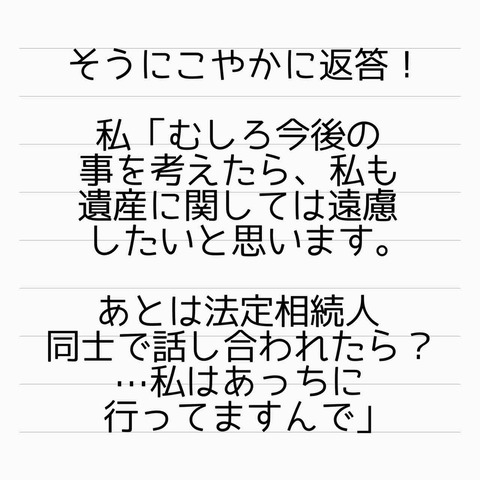 そうにこやかに返答！
私「むしろ今後の
事を考えたら、私も
遺産に関しては遠慮
したいと思います。
あとは法定相続人
同士で話し合われたら？
…私はあっちに
行ってますんで」